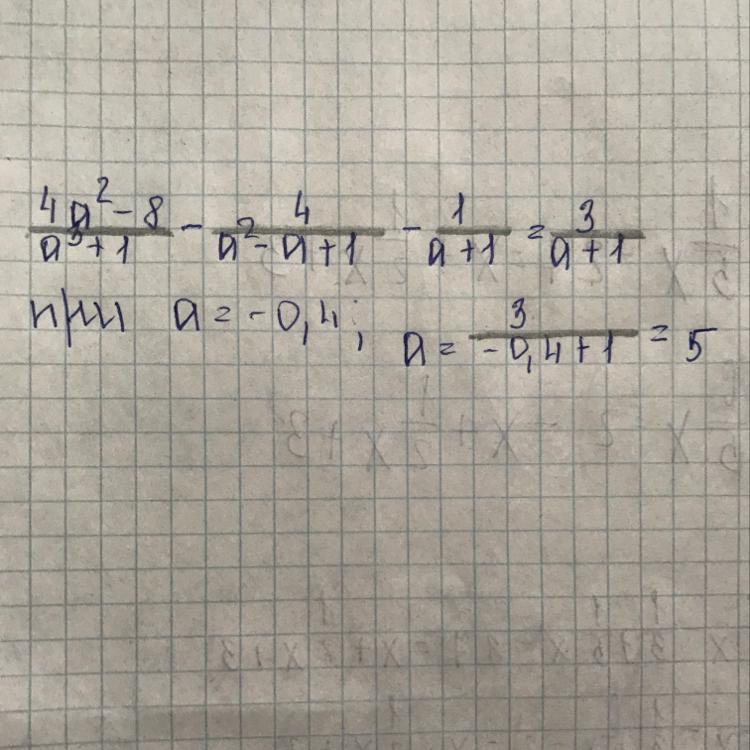 4a²-8/a³+1 - 4/a²-a+1 - 1/a+1 = 3/a+1
при a = -0,4; a = 3/-0,4+1 = 5